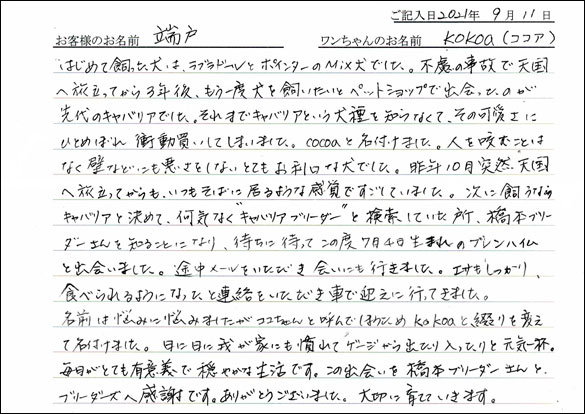 ご記入日2021年 9月 11日
お客様のお名前 端戸 ワンちゃんのお名前 KOKOa(ココア)
はじめて飼った犬は、ラブラドールとポインターのMix犬でした。不慮の事故で天国
へ旅立ってから3年後、もう一度犬を飼いたいとペットショップで出会ったのが
先代のキャバリアでした。それまでキャバリアという犬種を知らなくて、その可愛さに
ひとめぼれ 衝動買いしてしまいました。cocoaと名付けました。人を咬むことは
なく壁などにも悪さをしないとてもお利口な犬でした。昨年10月突然、天国
へ旅立ってからも、いつもそばに居るような感覚ですごしていました。次に飼うなら
キャバリアと決めて、何気なく"キャバリアブリーダー"と検索していた所、橋本ブリー
ダーさんを知ることになり、待ちに待ってこの度7月4日生まれのブレンハイム
と出会いました。途中メールをいただき会いにも行きました。エサもしっかり、
食べられるようになったと連絡をいただき車で迎えに行ってきました。
名前は悩みに悩みましたがココちゃんと呼んでいたため kokoaと綴りを変え
て名付けました。日に日に我が家にも慣れてゲージから出たり入ったりと元気一杯。
毎日がとても有意義で穏やかな生活です。この出会いを橋本ブリーダーさんと、
ブリーダーズへ感謝です。ありがとうございました。大切に育てていきます。